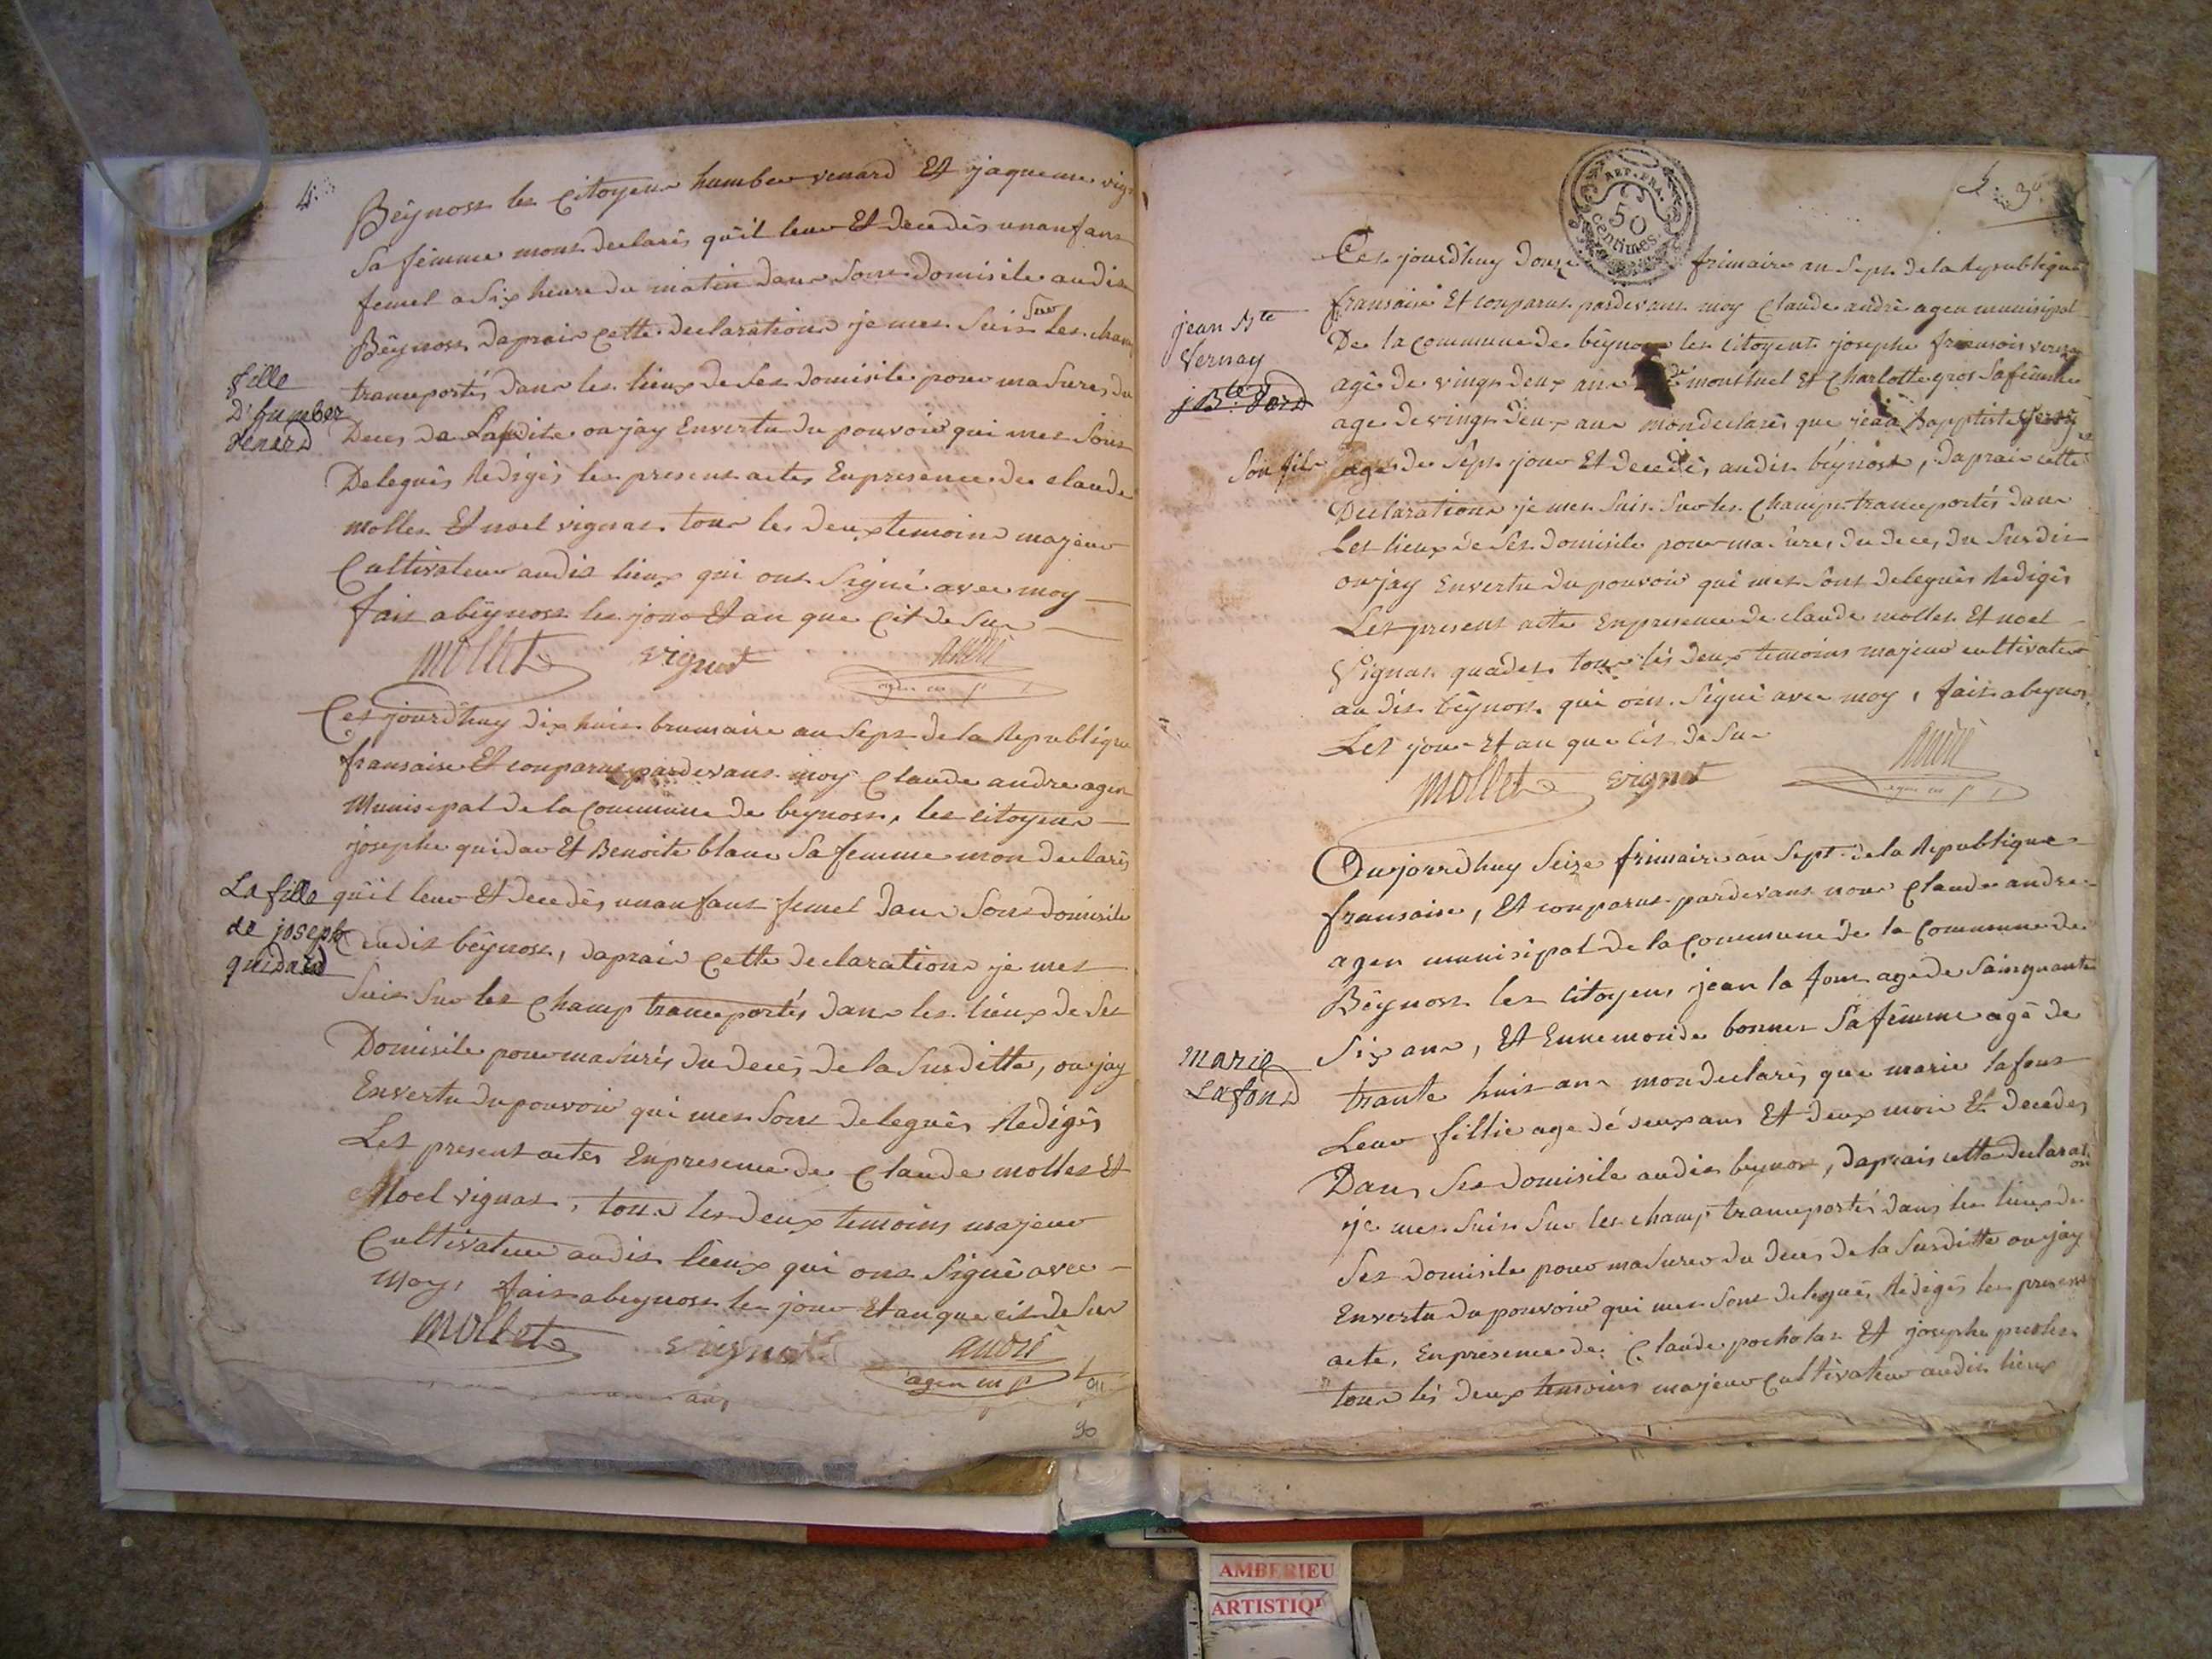 4.
Bëynost les Citoyens humber venard Et jaqueme vig
Sa femme mont declarés qu'il leur Et decedés un anfant
femel a six heure du matin dans Sont domisile audit
Bëynost, daprais cette declarations je mes Suis Sur Les cham
transportés dans les lieux de Ses domisile pour masurés du
fille
D'humber
venard
Deces De Laditte ou jay Envertu du pouvoir qui mes Sont
Delegués Redigés les present actes En presence de claude
mollet Et noel vignat tous les deux temoins majeur
Cultivateur audit lieux qui ont Signé avec moy
fait a bëynost les jour Et an que cit desur
mollet vignat andré
agen m p l
Cet jourdhuy dix huit brumaire an Sept de la Republique
fransaise Et conparut pardevant moy Claude andre agen
Munisipal de la Commune de beynost, les citoyens
josephe guidar Et Benoite blanc Sa femme mon declarés
La fille
de joseph
guidard
qu'il leur Et decedés, un anfant femel dans Sont domisile
audit bëynost, daprais Cette declarations je mes
Suis Sur les Champ transportés dans les lieux de Ses
Domisile pour masurés du deces de la Susditte, ou jay
Envertu du pouvoir qui mes Sont delegués Redigés
Les present actes En presence de Claude mollet Et
Noel vignat, tous les deux temoins majeur
Cultivateur audit lieux qui ont Signé avec
Moy, fait a beynost les jour Et an que cit de Sur
mollet vignat andré
agen m p
90
REP. FRA.
50
Centimes.
Cet jourdhuy douze frimaire an Sept de la Republique
fransaise Et conparut pardevant moy Claude andré agen munisipal
jean Bte
Vernay
De la Commune de bëynost les Citoyent josephe fransois vernay
agé de vingt deux ans de montluel Et Charlotte gros Sa femme
age de vingt deux ans mondeclarés que jean Bapptiste
Son fils
age de Sept jour Et decedé, audit bëynost, daprais cette
Declarations je mes Suis Sur les Champ transportés dans
Les lieux de Ses domisile pour masurés, du deces, du Susdit
ou jay Envertu du pouvoir qui mes Sont delegués Redigés
Les present acte En presence de claude mollet Et noel
Vignat quadet tous lés deux temoins majeur cultivateur
audit bëynost qui ont Signé avec moy, fait a beynos
Les jour Et an que cit de Sur
mollet vignat andré
agen m p l
Aujourdhuy Seize frimaire an Sept de la Republique
fransaise, Et conparut pardevant nous Claude andre
agen munisipal de la Commune de la Commune de
Bëynost les Citoyens jean la font age de Sainquante
marie
Lafond
Six ans, Et Ennemonde bonnet Sa femme agé de
trante huit ans mondeclarés que marie lafont
Leur fillie age de deux ans Et deux mois Et decedes
Dans Ses domisile audit beynost, daprais cette declarations
je mes Suis Sur les champ transportés dans les lieux de
Ses domisile pour masures du deces de la Susditte ou jay
Envertu du pouvoir qui mes Sont delegués, Redigés les present
acte, En presence de Claude pocholat Et josephe
tous lés deux temoins majeur Cultivateur audit lieux
AMBERIEU
ARTISTIQU